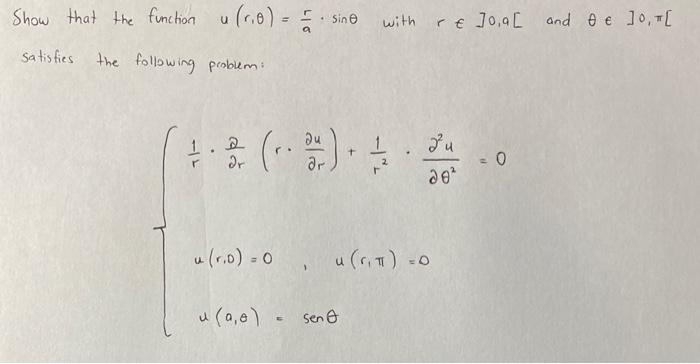 Show that the function u(r,θ) = r/a · sinθ with r ∈ ]0,a[ and θ ∈ ]0,π[
satisfies the following problem:
1/r · ∂/∂r (r · ∂u/∂r) + 1/r² · ∂²u/∂θ² = 0
u(r,0) = 0 , u(r,π) = 0
u(a,θ) = senθ